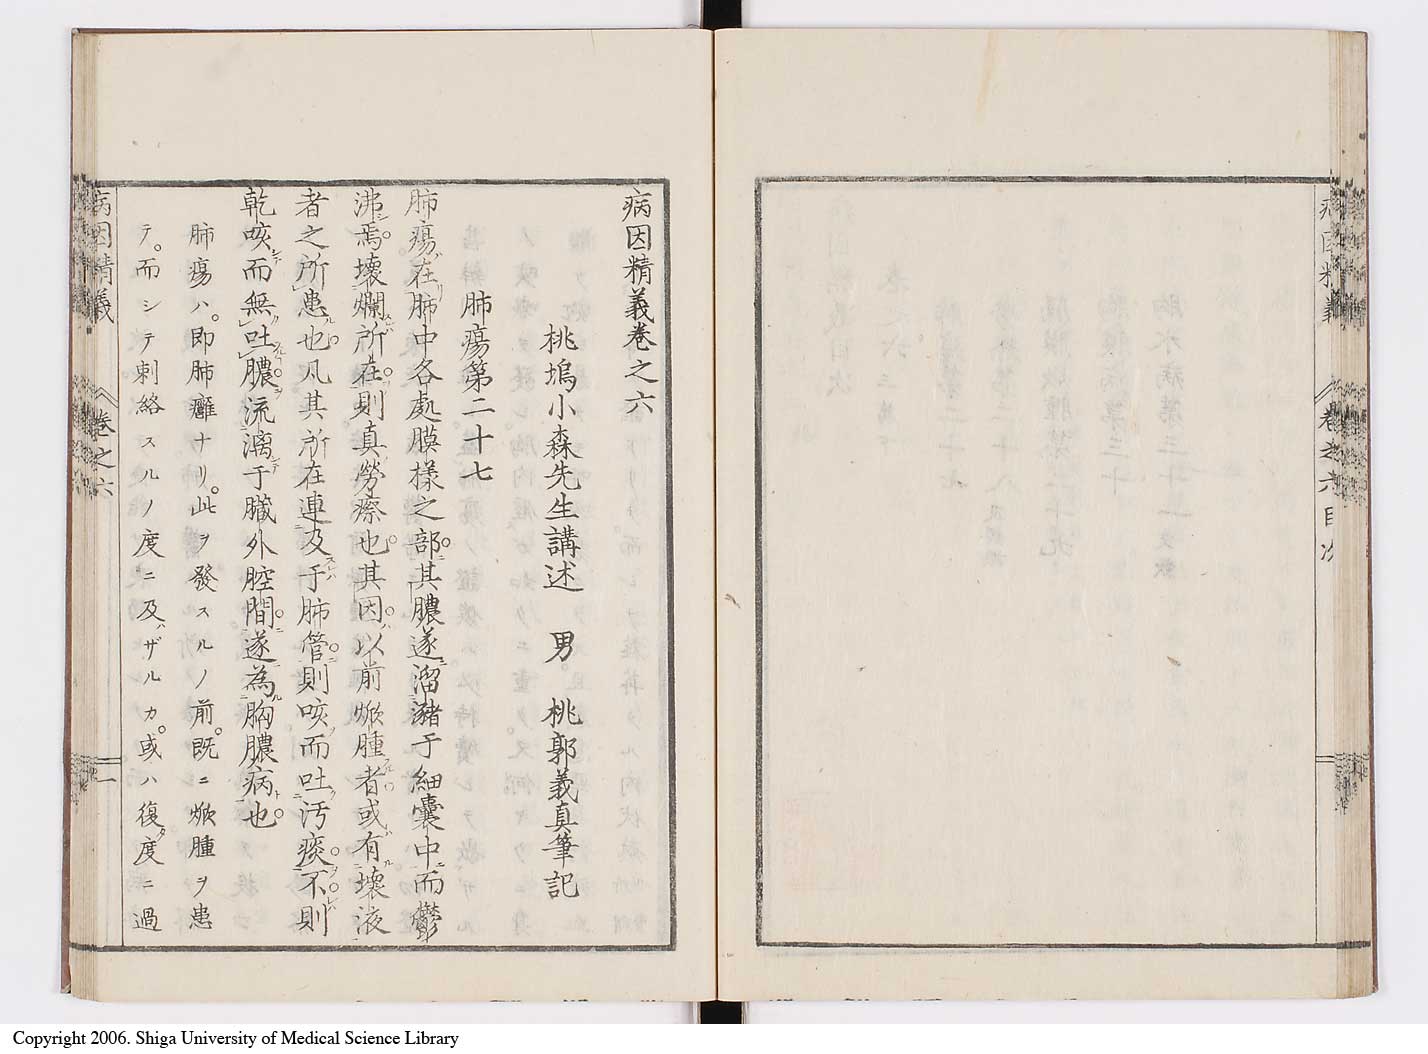 病因精義
卷之六目次
病因精義卷之六
桃塢小森先生講述　男　桃郭義真筆記
肺瘍第二十七
肺瘍ハ在リ肺中各處膜樣之部ニ其膿遂溜瀦于細嚢中ニ而鬱
沸ス焉壞爛所在則真勞瘵也其因ハ以前焮腫者或ハ有ル壞液
者之所患也凡其所在連及于肺管ニ則咳而吐汚痰ヲ不レバ則
乾咳シテ而無吐膿ヲ流漓シテ于臓外腔間ニ遂為ル胸膿病ト也
肺瘍ハ即肺癰ナリ此ヲ發スルノ前既ニ焮腫ヲ患
テ而シテ刺絡スルノ度ニ及バザルカ或ハ復タ度ニ過
病因精義
卷之六
一
Copyright 2006. Shiga University of Medical Science Library